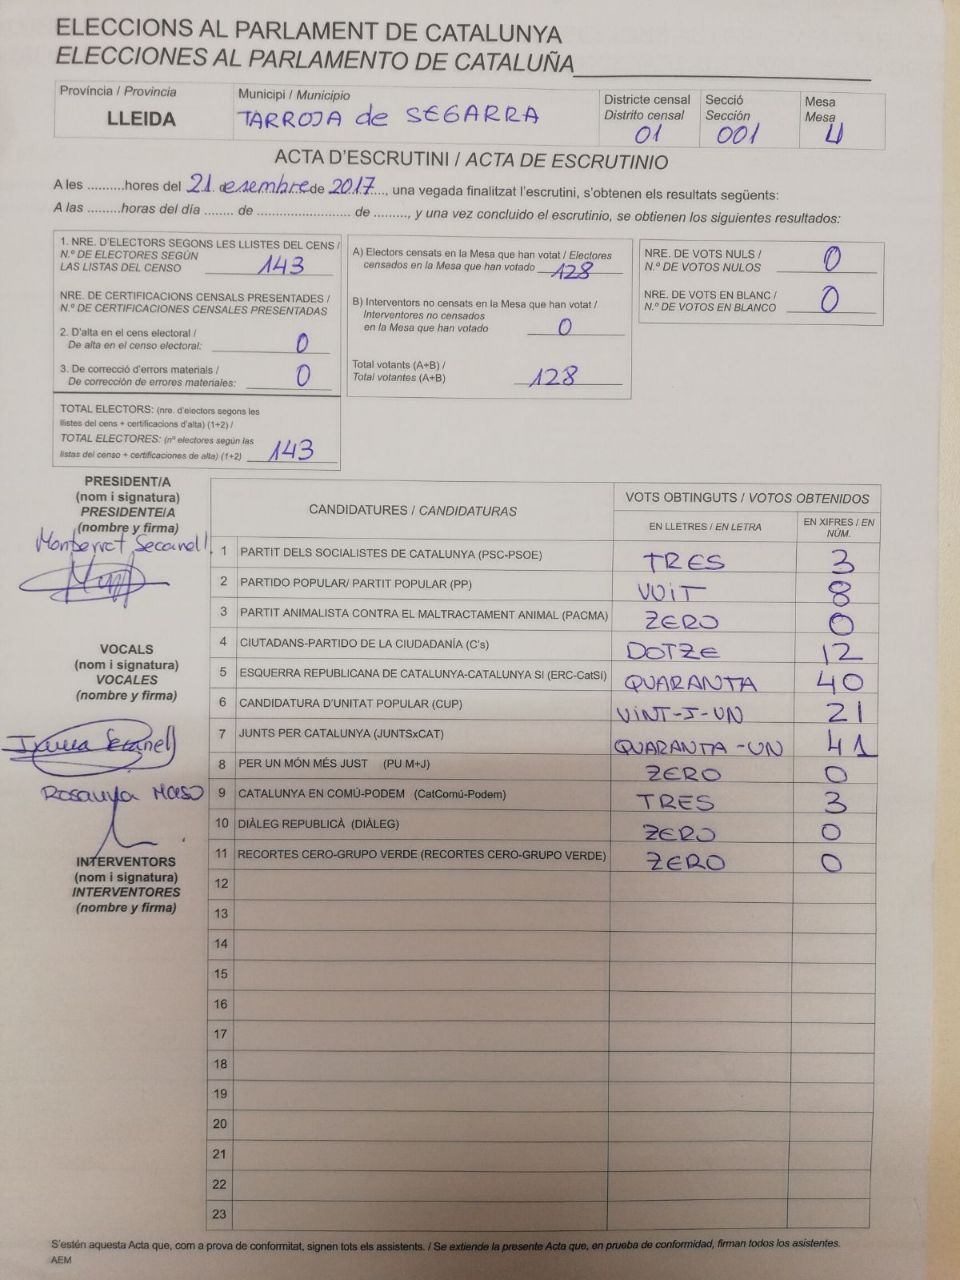 ELECCIONS AL PARLAMENT DE CATALUNYA
ELECCIONES AL PARLAMENTO DE CATALUÑA
Província / Provincia
LLEIDA
Municipi / Municipio
TARROJA de SEGARRA
Districte censal
Distrito censal
01
Secció
Sección
001
Mesa
Mesa
U
ACTA D'ESCRUTINI / ACTA DE ESCRUTINIO
A les ..........hores del 21 desembre de 2017, una vegada finalitzat l'escrutini, s'obtenen els resultats següents:
A las .........horas del día ........ de .......................... de ........., y una vez concluido el escrutinio, se obtienen los siguientes resultados:
1. NRE. D'ELECTORS SEGONS LES LLISTES DEL CENS /
N.º DE ELECTORES SEGÚN
LAS LISTAS DEL CENSO 143
NRE. DE CERTIFICACIONS CENSALS PRESENTADES /
N.º DE CERTIFICACIONES CENSALES PRESENTADAS
2. D'alta en el cens electoral /
De alta en el censo electoral: 0
3. De correcció d'errors materials /
De corrección de errores materiales: 0
TOTAL ELECTORS: (nre. d'electors segons les
llistes del cens + certificacions d'alta) (1+2) /
TOTAL ELECTORES: (nº electores según las
listas del censo + certificaciones de alta) (1+2) 143
A) Electors censats en la Mesa que han votat / Electores
censados en la Mesa que han votado 128
B) Interventors no censats en la Mesa que han votat /
Interventores no censados
en la Mesa que han votado 0
Total votants (A+B) /
Total votantes (A+B) 128
NRE. DE VOTS NULS /
N.º DE VOTOS NULOS 0
NRE. DE VOTS EN BLANC /
N.º DE VOTOS EN BLANCO 0
PRESIDENT/A
(nom i signatura)
PRESIDENTE/A
(nombre y firma)
Montserrat Secanell
VOCALS
(nom i signatura)
VOCALES
(nombre y firma)
Secanell
Rosanya Maso
INTERVENTORS
(nom i signatura)
INTERVENTORES
(nombre y firma)
CANDIDATURES / CANDIDATURAS
VOTS OBTINGUTS / VOTOS OBTENIDOS
EN LLETRES / EN LETRA
EN XIFRES / EN NÚM.
1 PARTIT DELS SOCIALISTES DE CATALUNYA (PSC-PSOE) TRES 3
2 PARTIDO POPULAR/ PARTIT POPULAR (PP) VUIT 8
3 PARTIT ANIMALISTA CONTRA EL MALTRACTAMENT ANIMAL (PACMA) ZERO 0
4 CIUTADANS-PARTIDO DE LA CIUDADANÍA (C's) DOTZE 12
5 ESQUERRA REPUBLICANA DE CATALUNYA-CATALUNYA SI (ERC-CatSI) QUARANTA 40
6 CANDIDATURA D'UNITAT POPULAR (CUP) VINT-I-UN 21
7 JUNTS PER CATALUNYA (JUNTSxCAT) QUARANTA-UN 41
8 PER UN MÓN MÉS JUST (PU M+J) ZERO 0
9 CATALUNYA EN COMÚ-PODEM (CatComú-Podem) TRES 3
10 DIÀLEG REPUBLICÀ (DIÀLEG) ZERO 0
11 RECORTES CERO-GRUPO VERDE (RECORTES CERO-GRUPO VERDE) ZERO 0
12
13
14
15
16
17
18
19
20
21
22
23
S'estén aquesta Acta que, com a prova de conformitat, signen tots els assistents. / Se extiende la presente Acta que, en prueba de conformidad, firman todos los asistentes.
AEM